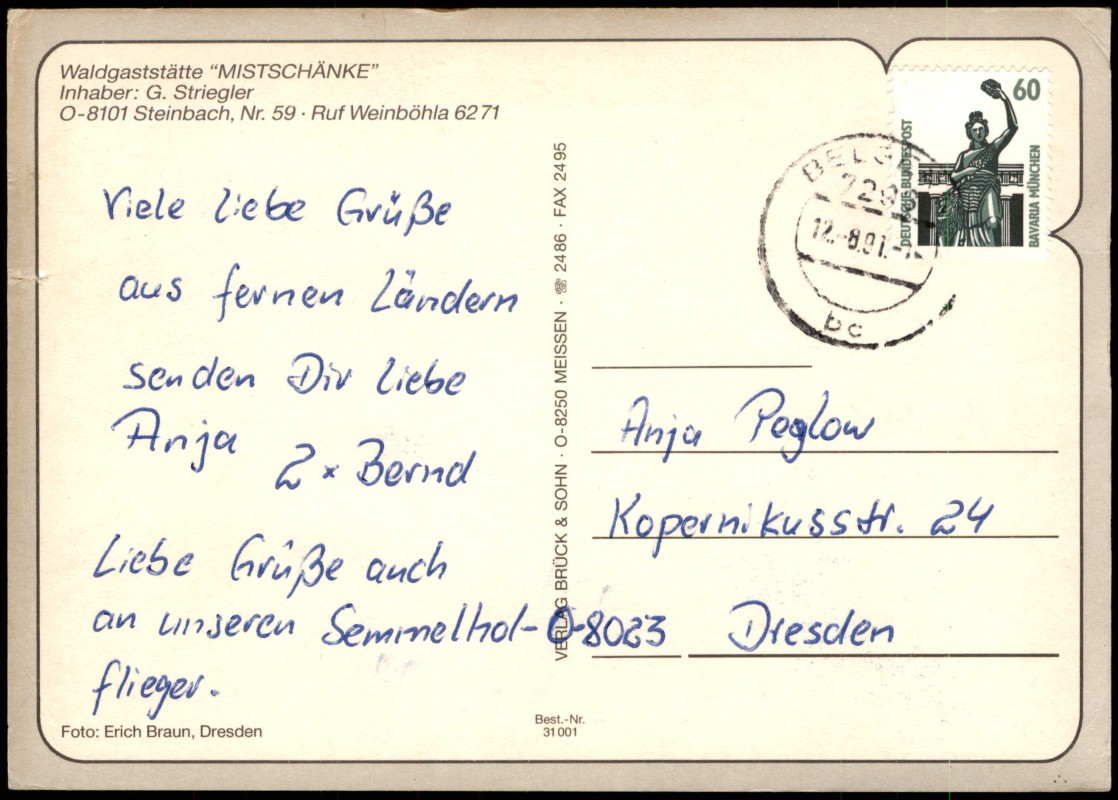 Waldgaststätte "MISTSCHÄNKE"
Inhaber: G. Striegler
O-8101 Steinbach, Nr. 59 · Ruf Weinböhla 62 71
Viele liebe Grüße
aus fernen Ländern
senden Dir liebe
Anja
2 × Bernd
Liebe Grüße auch
an unseren Semmelhol-
flieger.
Foto: Erich Braun, Dresden
VERLAG BRÜCK & SOHN · O-8250 MEISSEN · ☏ 24 86 · FAX 24 95
Best.-Nr.
31 001
60
DEUTSCHE BUNDESPOST
BAVARIA MÜNCHEN
12.-8.91.-
bc
Anja Peglow
Kopernikusstr. 24
O-8023 Dresden